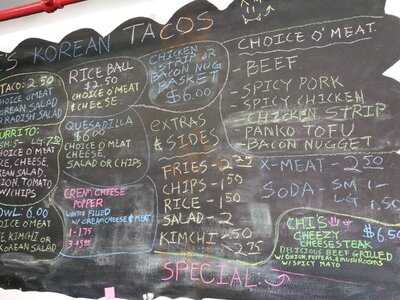 'S KOREAN TACOS
TACO: 2.50
CHOICE O' MEAT
KOREAN SALAD
RADISH SALAD
BURRITO:
CHOICE O' MEAT
RICE, CHEESE,
KOREAN SALAD,
ONION, TOMATO
W/CHIPS
BOWL: 6.00
CHOICE O' MEAT
RICE, KIMCHI OR
KOREAN SALAD
RICE BALL
CHOICE O' MEAT
& CHEESE
QUESADILLA
$6.00
CHOICE O' MEAT
CHEESE
SALAD OR CHIPS
CREAM CHEESE
POPPER
WONTON FILLED
W/ CREAM CHEESE & MEAT
1-1.75
CHICKEN
STRIP OR
BACON NUG
BASKET
$6.00
EXTRAS
& SIDES
FRIES - 2.25
CHIPS - 1.50
RICE - 1.50
SALAD - 2
KIMCHI - .50
2.75
SPECIAL:
CHOICE O' MEAT
- BEEF
- SPICY PORK
- SPICY CHICKEN
- CHICKEN STRIP
- PANKO TOFU
- BACON NUGGET
X-MEAT - 2.50
SODA - SM 1-
LG 1.50
CHI'S
CHEEZY
CHEESESTEAK
$6.50
DELICIOUS BEEF GRILLED
W/ ONION, PEPPERS, & MUSHROOMS
W/ SPICY MAYO